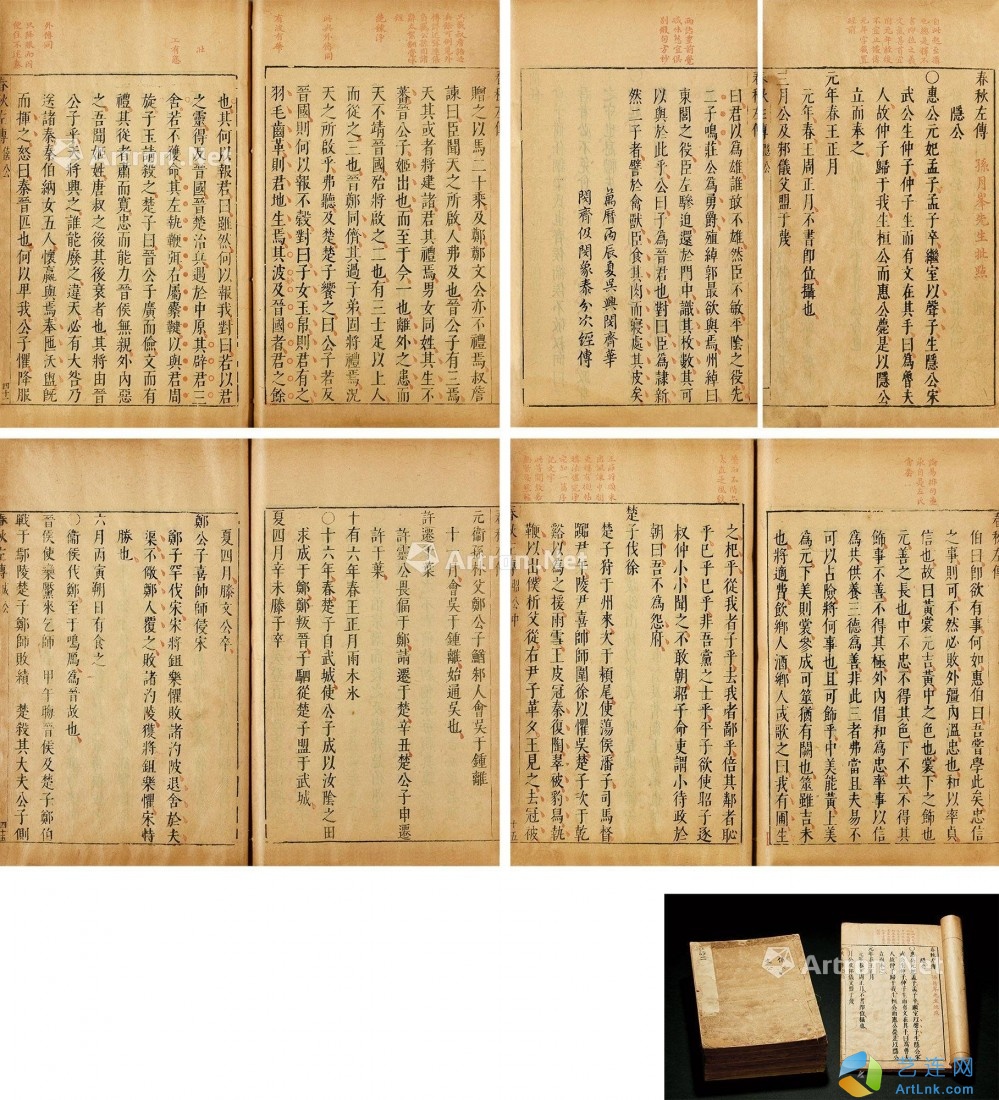 春秋左傳
孫月峯先生批點
隱公
○惠公元妃孟子孟子卒繼室以聲子生隱公宋
武公生仲子仲子生而有文在其手曰爲魯夫
人故仲子歸于我生桓公而惠公薨是以隱公
立而奉之
元年春王正月
元年春王周正月不書即位攝也
三月公及邾儀父盟于蔑
曰君以爲雄誰敢不雄然臣不敏平陰之役先
二子鳴莊公爲勇爵殖綽郭最欲與焉州綽曰
東閭之役臣左驂迫還於門中識其枚數其可
以與於此乎公曰子爲晉君也對曰臣爲隸新
然二子者譬於禽獸臣食其肉而寢處其皮矣
萬曆丙辰夏吳興閔齊華
閔齊伋閔象泰分次經傳
贈之以馬二十乘及鄭鄭文公亦不禮焉叔詹
諫曰臣聞天之所啟人弗及也晉公子有三焉
天其或者將建諸君其禮焉男女同姓其生不
蕃晉公子姬出也而至于今一也離外之患而
天不靖晉國殆將啟之二也有三士足以上人
而從之三也晉鄭同儕其過子弟固將禮焉況
天之所啟乎弗聽及楚楚子饗之曰公子若反
晉國則何以報不穀對曰子女玉帛則君有之
羽毛齒革則君地生焉其波及晉國者君之餘
也其何以報君曰雖然何以報我對曰若以君
之靈得反晉國晉楚治兵遇於中原其辟君三
舍若不獲命其左執鞭弭右屬櫜鞬以與君周
旋子玉請殺之楚子曰晉公子廣而儉文而有
禮其從者肅而寬忠而能力晉侯無親外內惡
之吾聞姬姓唐叔之後其後衰者也其將由晉
公子乎天將興之誰能廢之違天必有大咎乃
送諸秦秦伯納女五人懷嬴與焉奉匜沃盥既
而揮之怒曰秦晉匹也何以卑我公子懼降服
伯曰即欲有事何如惠伯曰吾嘗學此矣忠信
之事則可不然必敗外彊內溫忠也和以率貞
信也故曰黃裳元吉黃中之色也裳下之飾也
元善之長也中不忠不得其色下不共不得其
飾事不善不得其極外內倡和爲忠率事以信
爲共供養三德爲善非此三者弗當且夫易不
可以占險將何事也且可飾乎中美能黃上美
爲元下美則裳參成可筮猶有闕也筮雖吉未
也將適費飲鄉人酒鄉人或歌之曰我有圃生
之杞乎從我者子乎去我者鄙乎倍其鄰者恥
乎已乎已乎非吾黨之士乎平子欲使昭子逐
叔仲小小聞之不敢朝昭子命吏謂小待政於
朝曰吾不爲怨府
楚子伐徐
楚子狩于州來次于潁尾使蕩侯潘子司馬督
囂尹午陵尹喜帥師圍徐以懼吳楚子次于乾
谿以爲之援雨雪王皮冠秦復陶翠被豹舄執
鞭以出僕析父從右尹子革夕王見之去冠被
元衛孫林父鄭公子鰌邾人會吳于鍾離
十一月會吳于鍾離始通吳也
許遷于葉
許靈公畏偪于鄭請遷于楚辛丑楚公子申遷
許于葉
十有六年春王正月雨木冰
○十六年春楚子自武城使公子成以汝陰之田
求成于鄭鄭叛晉子駟從楚子盟于武城
夏四月辛未滕子卒
夏四月滕文公卒
鄭公子喜帥師侵宋
鄭子罕伐宋宋將鉏樂懼敗諸汋陂退舍於夫
渠不儆鄭人覆之敗諸汋陵獲將鉏樂懼宋恃
勝也
六月丙寅朔日有食之
○衞侯伐鄭至于鳴鴈爲晉故也
晉侯使欒黶來乞師 甲午晦晉侯及楚子鄭伯
戰于鄢陵楚子鄭師敗績 楚殺其大夫公子側
Artron.Net
艺连网
ArtLnk.com